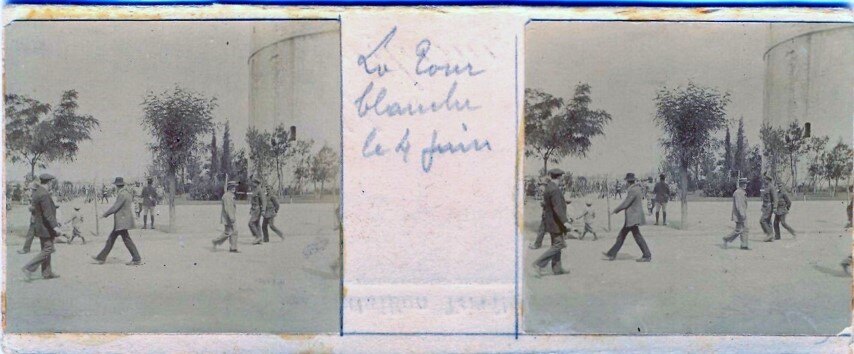 La Tour
blanche
le 4 juin